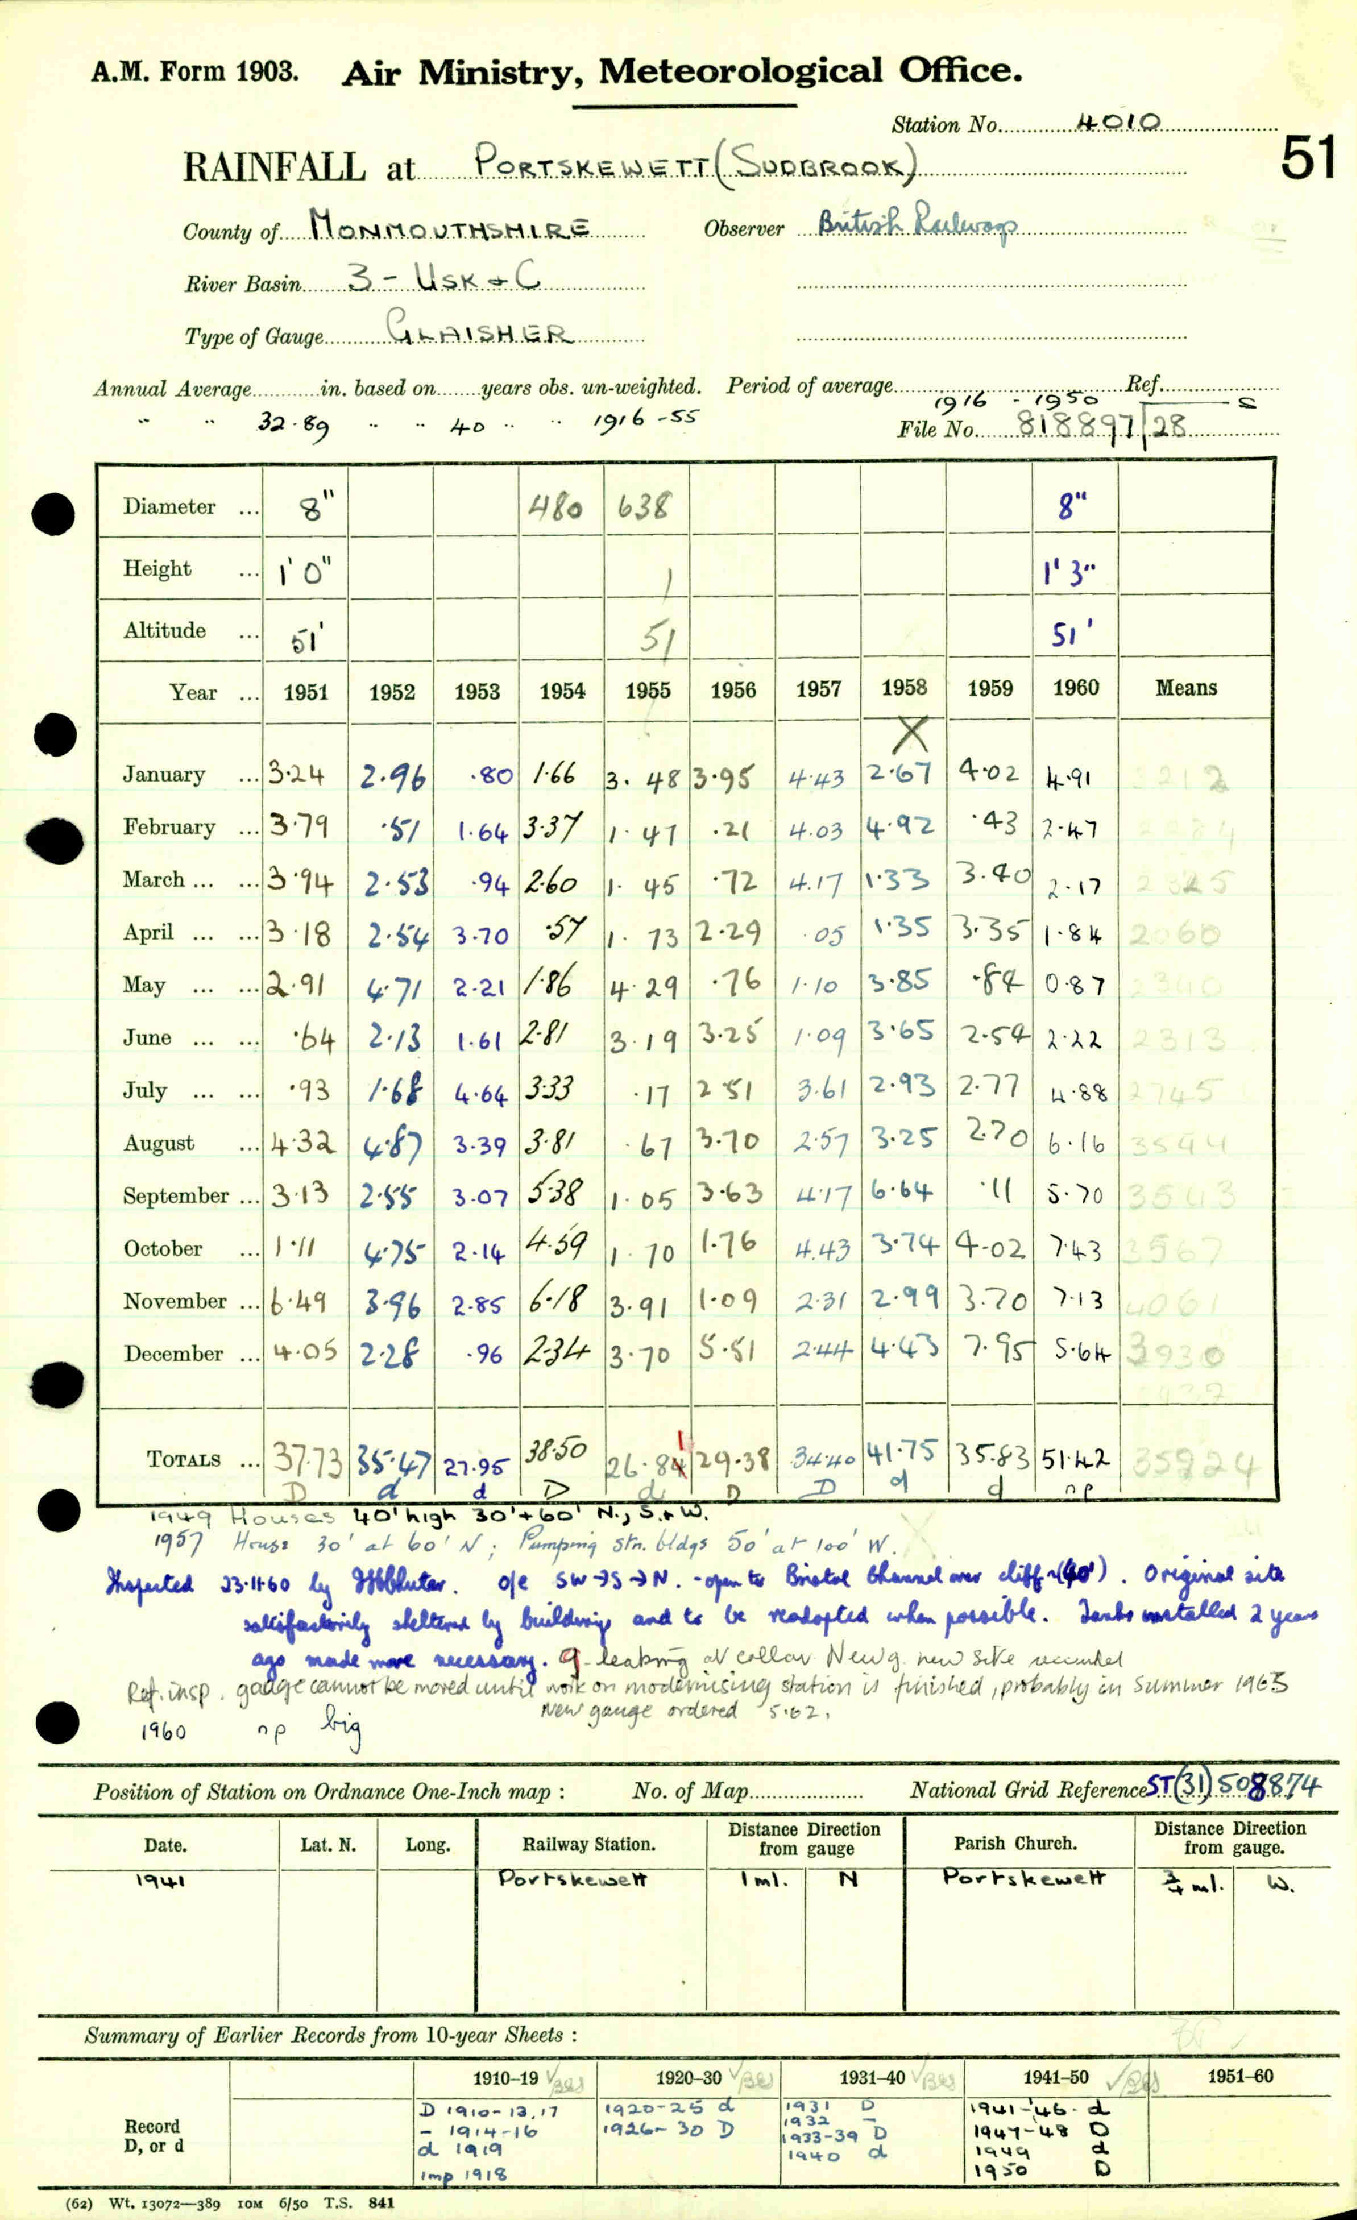 A.M. Form 1903. Air Ministry, Meteorological Office.
Station No. 4010
51
RAINFALL at PORTSKEWETT (SUDBROOK)
County of MONMOUTHSHIRE Observer British Railways
River Basin 3 - USK + C
Type of Gauge GLAISHER
Annual Average in. based on years obs. un-weighted. Period of average 1916 - 1950 Ref. S
" " 32.89 " " 40 " " 1916-55 File No. 818897/28
Diameter ... 8" 480 638 8"
Height ... 1' 0" 1 1' 3"
Altitude ... 51' 51 51'
Year ... 1951 1952 1953 1954 1955 1956 1957 1958 1959 1960 Means
X
January ... 3.24 2.96 .80 1.66 3.48 3.95 4.43 2.67 4.02 4.91 3212
February ... 3.79 .51 1.64 3.37 1.47 .21 4.03 4.92 .43 2.47 2284
March ... ... 3.94 2.53 .94 2.60 1.45 .72 4.17 1.33 3.40 2.17 2325
April ... ... 3.18 2.54 3.70 .57 1.73 2.29 .05 1.35 3.35 1.84 2060
May ... ... 2.91 4.71 2.21 1.86 4.29 .76 1.10 3.85 .84 0.87 2340
June ... ... .64 2.13 1.61 2.81 3.19 3.25 1.09 3.65 2.54 2.22 2313
July ... ... .93 1.68 4.64 3.33 .17 2.51 3.61 2.93 2.77 4.88 2745
August ... 4.32 4.87 3.39 3.81 .67 3.70 2.57 3.25 2.70 6.16 3544
September ... 3.13 2.55 3.07 5.38 1.05 3.63 4.17 6.64 .11 5.70 3543
October ... 1.11 4.75 2.14 4.59 1.70 1.76 4.43 3.74 4.02 7.43 3567
November ... 6.49 3.96 2.85 6.18 3.91 1.09 2.31 2.99 3.70 7.13 4061
December ... 4.05 2.28 .96 2.34 3.70 5.51 2.44 4.43 7.95 5.64 3930
TOTALS ... 37.73 35.47 27.95 38.50 26.84 1 29.38 34.40 41.75 35.83 51.42 35924
D d d D d D D d d np
1949 Houses 40' high 30' + 60' N., S. + W.
1957 House 30' at 60' N; Pumping stn. bldgs 50' at 100' W.
Inspected 23.11.60 by o/e SW→S→N. - open to Bristol Channel over cliff (40'). Original site
satisfactorily sheltered by buildings and to be readopted when possible. Tanks installed 2 years
ago made move necessary. g - leaking at collar New g. new site recorded
Ref. insp. gauge cannot be moved until work on modernising station is finished, probably in Summer 1963
New gauge ordered 5.62.
1960 np big
Position of Station on Ordnance One-Inch map : No. of Map National Grid Reference ST (31) 508874
Date. Lat. N. Long. Railway Station. Distance Direction from gauge Parish Church. Distance Direction from gauge.
1941 Portskewett 1 ml. N Portskewett ¾ ml. W.
Summary of Earlier Records from 10-year Sheets :
1910–19 1920–30 1931–40 1941–50 1951–60
Record D, or d
D 1910-13, 17
- 1914-16
d 1919
imp 1918
1920-25 d
1926-30 D
1931 D
1932 -
1933-39 D
1940 d
1941-46 d
1947-48 D
1949 d
1950 D
(62) Wt. 13072—389 10M 6/50 T.S. 841